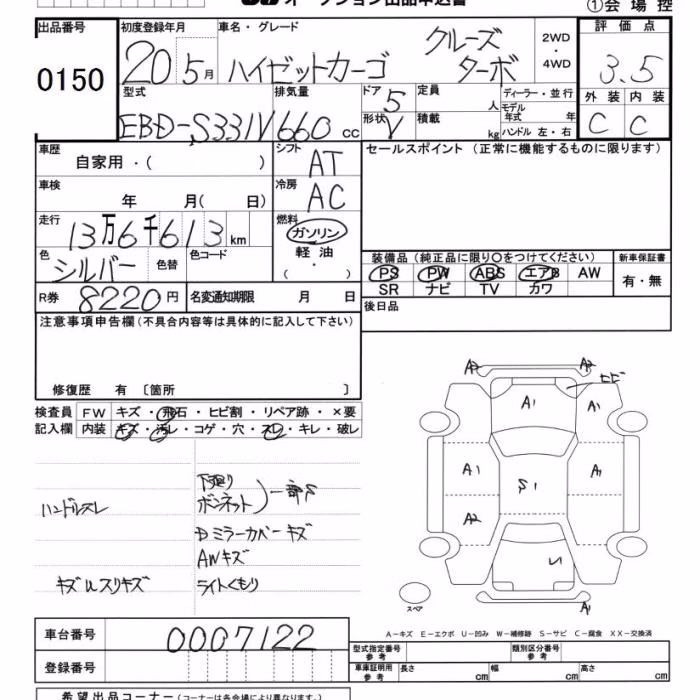 オークション出品申込書
①会場控
出品番号 初度登録年月 車名・グレード 2WD ・ 4WD 評価点
0150 20 5月 ハイゼットカーゴ クルーズ ターボ 3.5
型式 排気量 ドア 定員 ディーラー・並行 外装 内装
EBD-S331V 660cc 5 人 モデル年式 年 C C
形状 V 積載 kg ハンドル 左・右
車歴 自家用・( ) シフト AT セールスポイント (正常に機能するものに限ります)
車検 年 月( 日) 冷房 AC
走行 13万6千613km 燃料 ガソリン
軽油
( ・ )
色 シルバー 色替 色コード 装備品 (純正品に限り〇をつけてください) 新車保証書
PS PW ABS エアB AW 有・無
SR ナビ TV カワ
R券 8220円 名変通知期限 月 日 後日品
注意事項申告欄 (不具合内容等は具体的に記入して下さい)
修復歴 有 〔箇所 〕
検査員 FW キズ・飛石・ヒビ割・リペア跡・×要
記入欄 内装 キズ・汚レ・コゲ・穴・スレ・キレ・破レ
下廻り
ハンドルスレ ボンネット 一部S
Dミラーカバーキズ
AWキズ
ライトくもり
A2 A2
ヒビ
A1 A1
A1 S1 A1
A2
スペア A1
A-キズ E-エクボ U-凹み W-補修跡 S-サビ C-腐食 XX-交換済
車台番号 0007122 型式指定番号 参考 類別区分番号 参考
登録番号 車庫証明用 参考 長さ cm 幅 cm 高さ cm
希望出品コーナー (コーナーは各会場により異なります。)